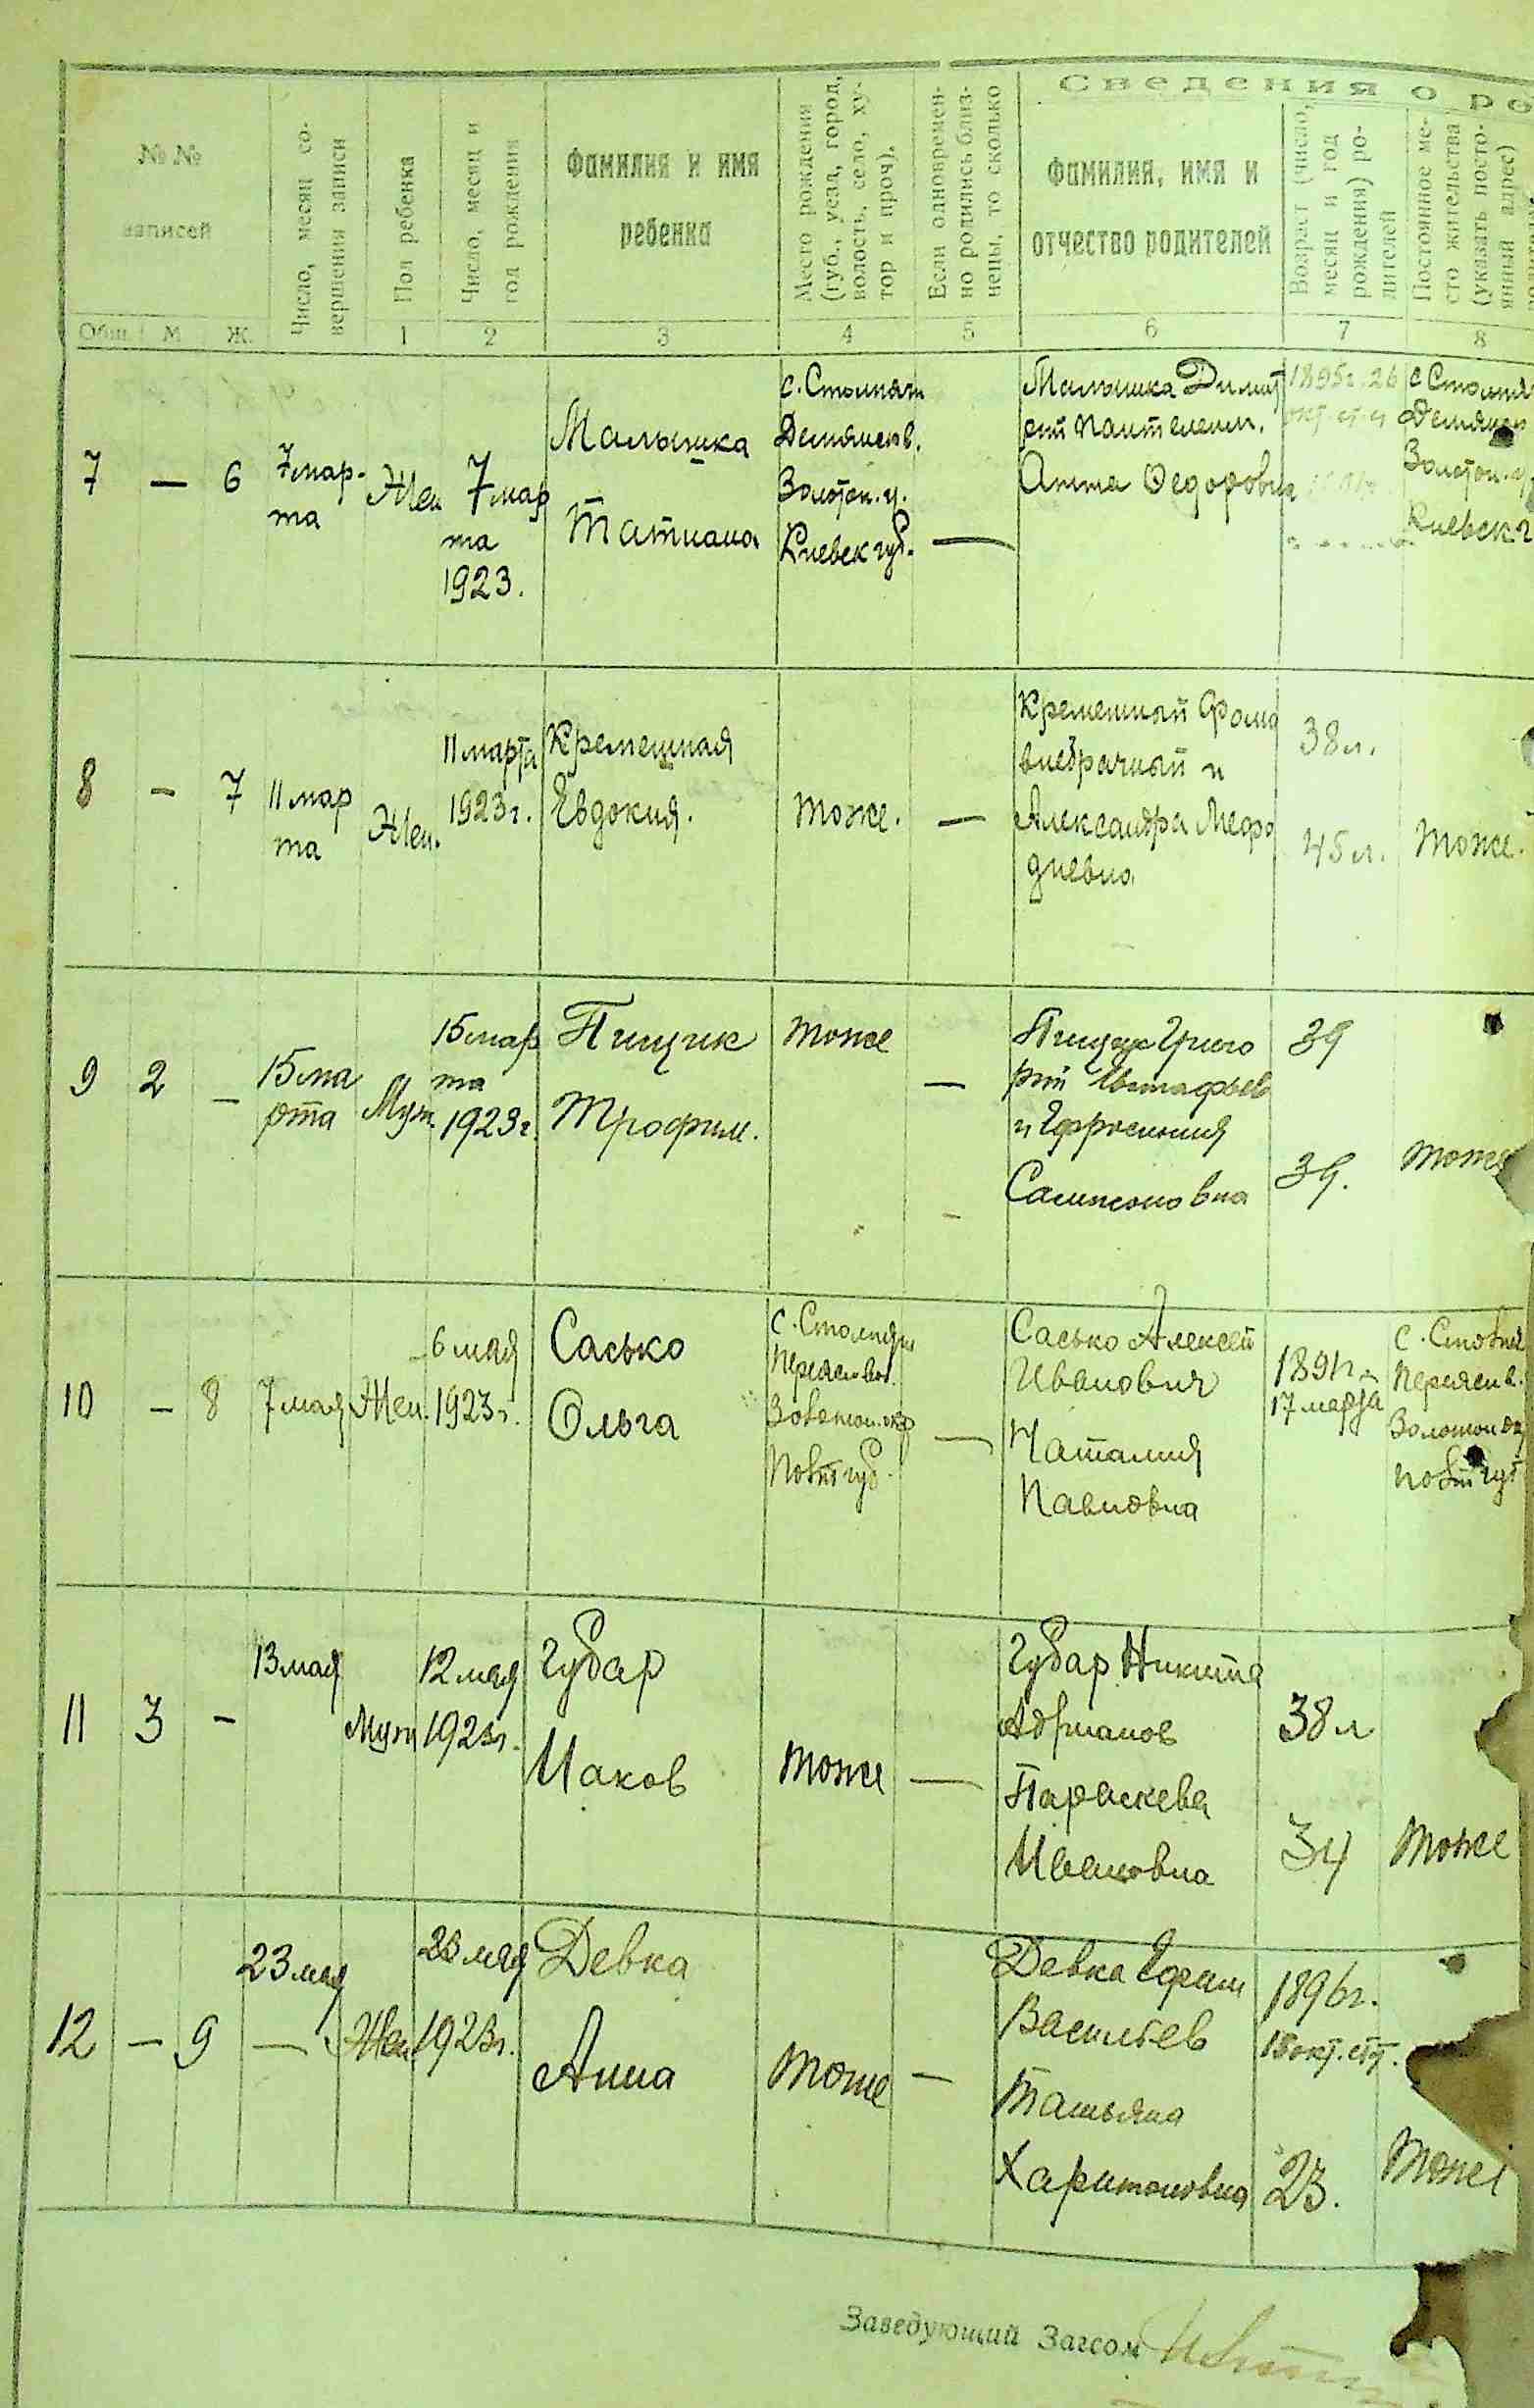 Сведения о ро
№ №
записей
Число, месяц со-
вершения записи
Пол ребенка
Число, месяц и
год рождения
Фамилия и имя
ребенка
Место рождения
(губ., уезд, город,
волость, село, ху-
тор и проч).
Если одновремен-
но родились близ-
нецы, то сколько
Фамилия, имя и
отчество родителей
Возраст (число,
месяц и год
рождения) ро-
дителей
Постоянное ме-
сто жительства
(указать посто-
янный адрес)
Общ. М Ж. 1 2 3 4 5 6 7 8
7 — 6
7 мар-
та
Жен
7 мар
та
1923.
Малышка
Татиана
с. Столпяги
Демянсв.
Золотон. у.
Киевск губ.
—
Малышка Димит
рий Пантелеим.
Анна Федоровна
1895г. 26
с Столпя
Демянс
Золотон. у
Киевск г
8 — 7
11 мар
та
Жен.
11 марта
1923 г.
Кремешная
Евдокия.
тоже.
—
Кремешный Фома
внебрачный и
Александра Мефо
диевна
38 л.
45 л.
тоже.
9 2 —
15 ма
рта
Муж.
15 мар
та
1923 г.
Пищик
Трофим.
тоже
—
Пищик Григо
рий Евстафьев
и Ефросиния
Сампсоновна
39
39.
тоже
10 — 8
7 мая
Жен.
6 мая
1923 г.
Сасько
Ольга
с. Столпяги
Переясвол.
Золотон. окр
Полт губ.
—
Сасько Алексей
Иванович
Наталия
Павловна
1891 г.
17 марта
с. Столпя
Переясв.
Золотон ок
Полт губ
11 3 —
13 мая
Муж
12 мая
1923 г.
Губар
Иаков
тоже
—
Губар Никита
Адрианов
Параскева
Ивановна
38 л
34
тоже
12 — 9
23 мая
—
Жен.
23 мая
1923 г.
Девка
Анна
тоже
—
Девка Ефим
Васильев
Татьяна
Харитоновна
1896 г.
23.
тоже
Заведующий Загсом